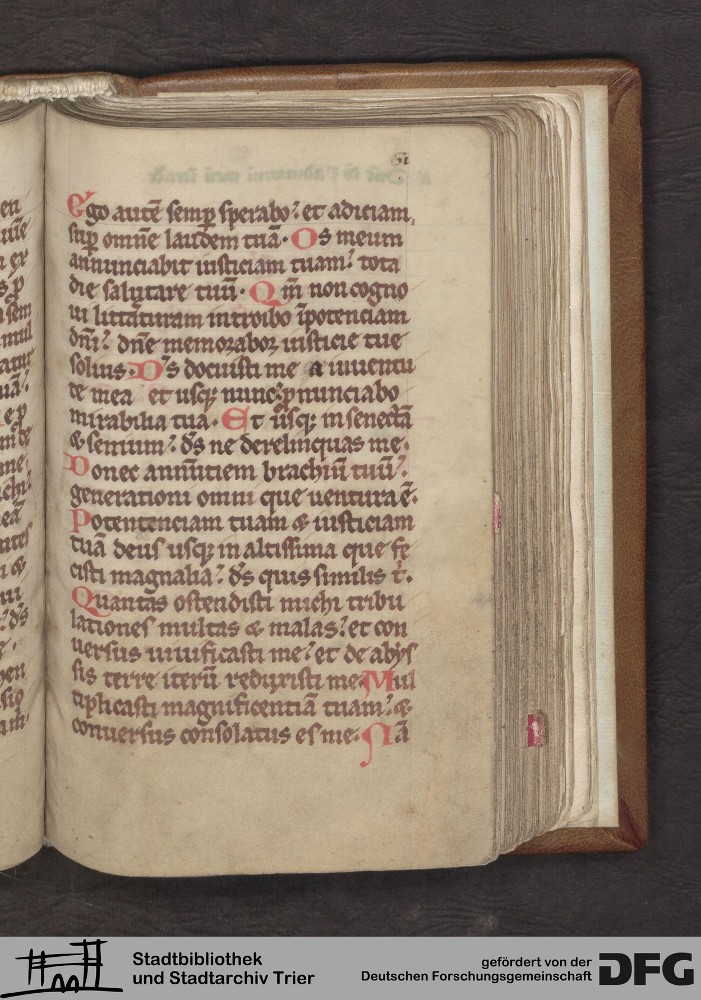 61
Ego autē semp̄ sperabo: et adiciam,
sup̄ omnē laudem tuā. Os meum
annunciabit iusticiam tuam: tota
die salutare tuū. Qm̄ non cogno
ui litt̄aturam introibo ī potenciam
dn̄i: dn̄e memorabor iusticie tue
solius. Ds̄ docuisti me a iuuentu
te mea et usq; nunc: p̄nunciabo
mirabilia tua. Et usq; in senectā
& senium: ds̄ ne derelinquas me.
Donec annūtiem brachiū tuū:
generationi omni que uentura ē.
Potentenciam tuam & iusticiam
tuā deus usq; in altissima que fe
cisti magnalia: ds̄ quis similis t̄.
Quantas ostendisti michi tribu
lationes multas & malas: et con
uersus uiuificasti me: et de abys
sis terre iterū reduxisti me. Mul
tiplicasti magnificentiā tuam: &
conuersus consolatus es me. Nā
Stadtbibliothek
und Stadtarchiv Trier
gefördert von der
Deutschen Forschungsgemeinschaft
DFG